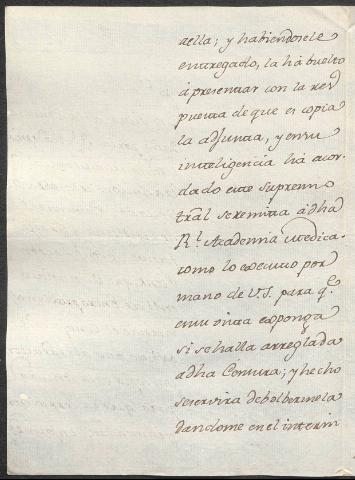 aella; y habiendosele
entregado, la há buelto
á presentar con la res
puesta de que es copia
la adjunta, y en su
inteligencia há acor-
dado este Supremo
tral se remita á dha
Rl. Academia Medica.
como lo executo por
mano de V.S. para q.e
en su vista exponga
si se halla arreglada
a dha Consura; y hecho
se servirá debolbermela
dandome en el interin